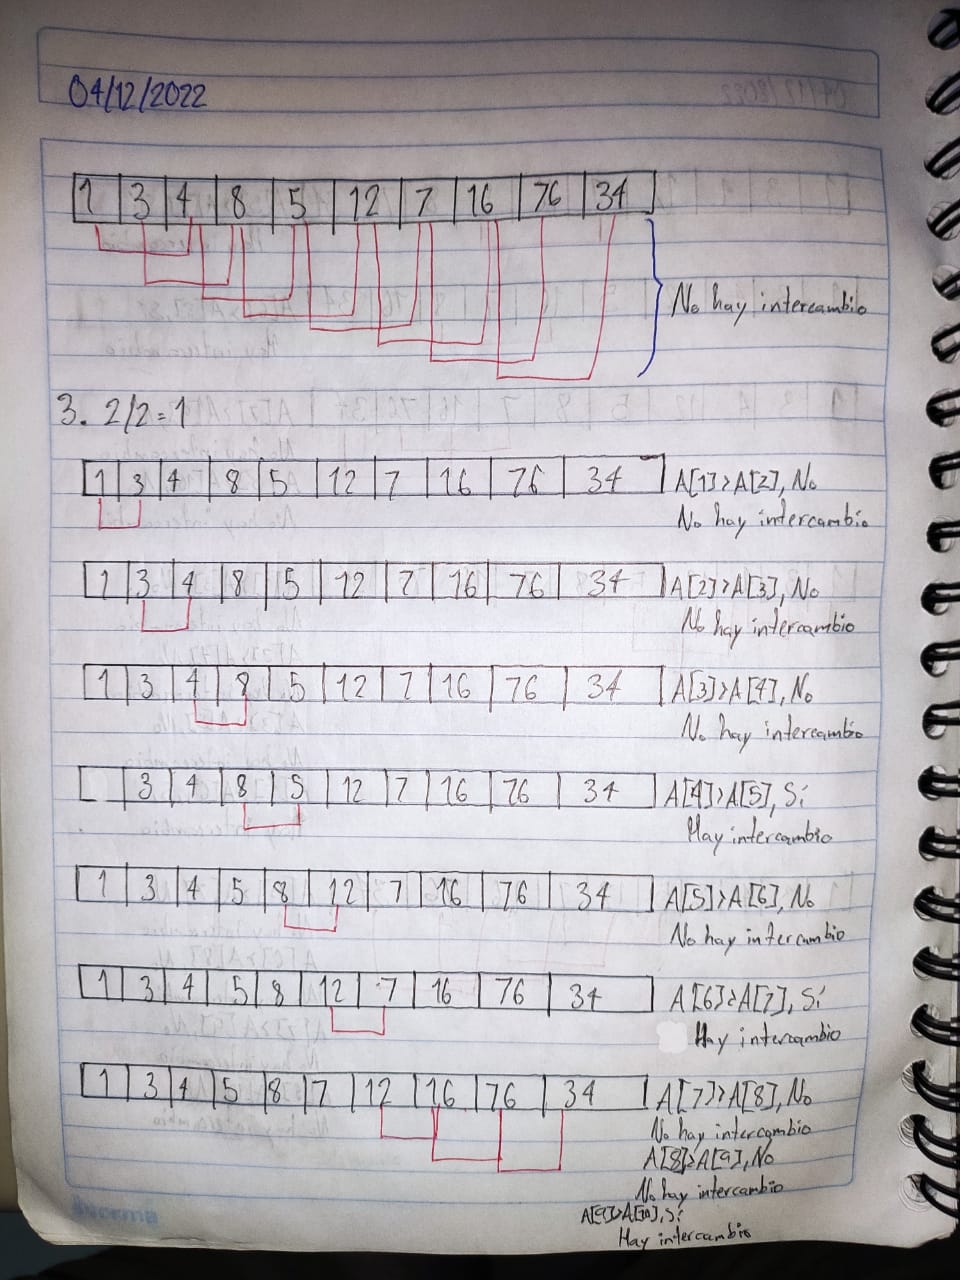 04/12/2022
1 3 4 8 5 12 7 16 76 34
No hay intercambio
3. 2/2=1
1 3 4 8 5 12 7 16 76 34 A[1]>A[2], No
No hay intercambio
1 3 4 8 5 12 7 16 76 34 A[2]>A[3], No
No hay intercambio
1 3 4 8 5 12 7 16 76 34 A[3]>A[4], No
No hay intercambio
3 4 8 5 12 7 16 76 34 A[4]>A[5], Sí
Hay intercambio
1 3 4 5 8 12 7 16 76 34 A[5]>A[6], No
No hay intercambio
1 3 4 5 8 12 7 16 76 34 A[6]>A[7], Sí
Hay intercambio
1 3 4 5 8 7 12 16 76 34 A[7]>A[8], No
No hay intercambio
A[8]>A[9], No
No hay intercambio
A[9]>A[10], Sí
Hay intercambio